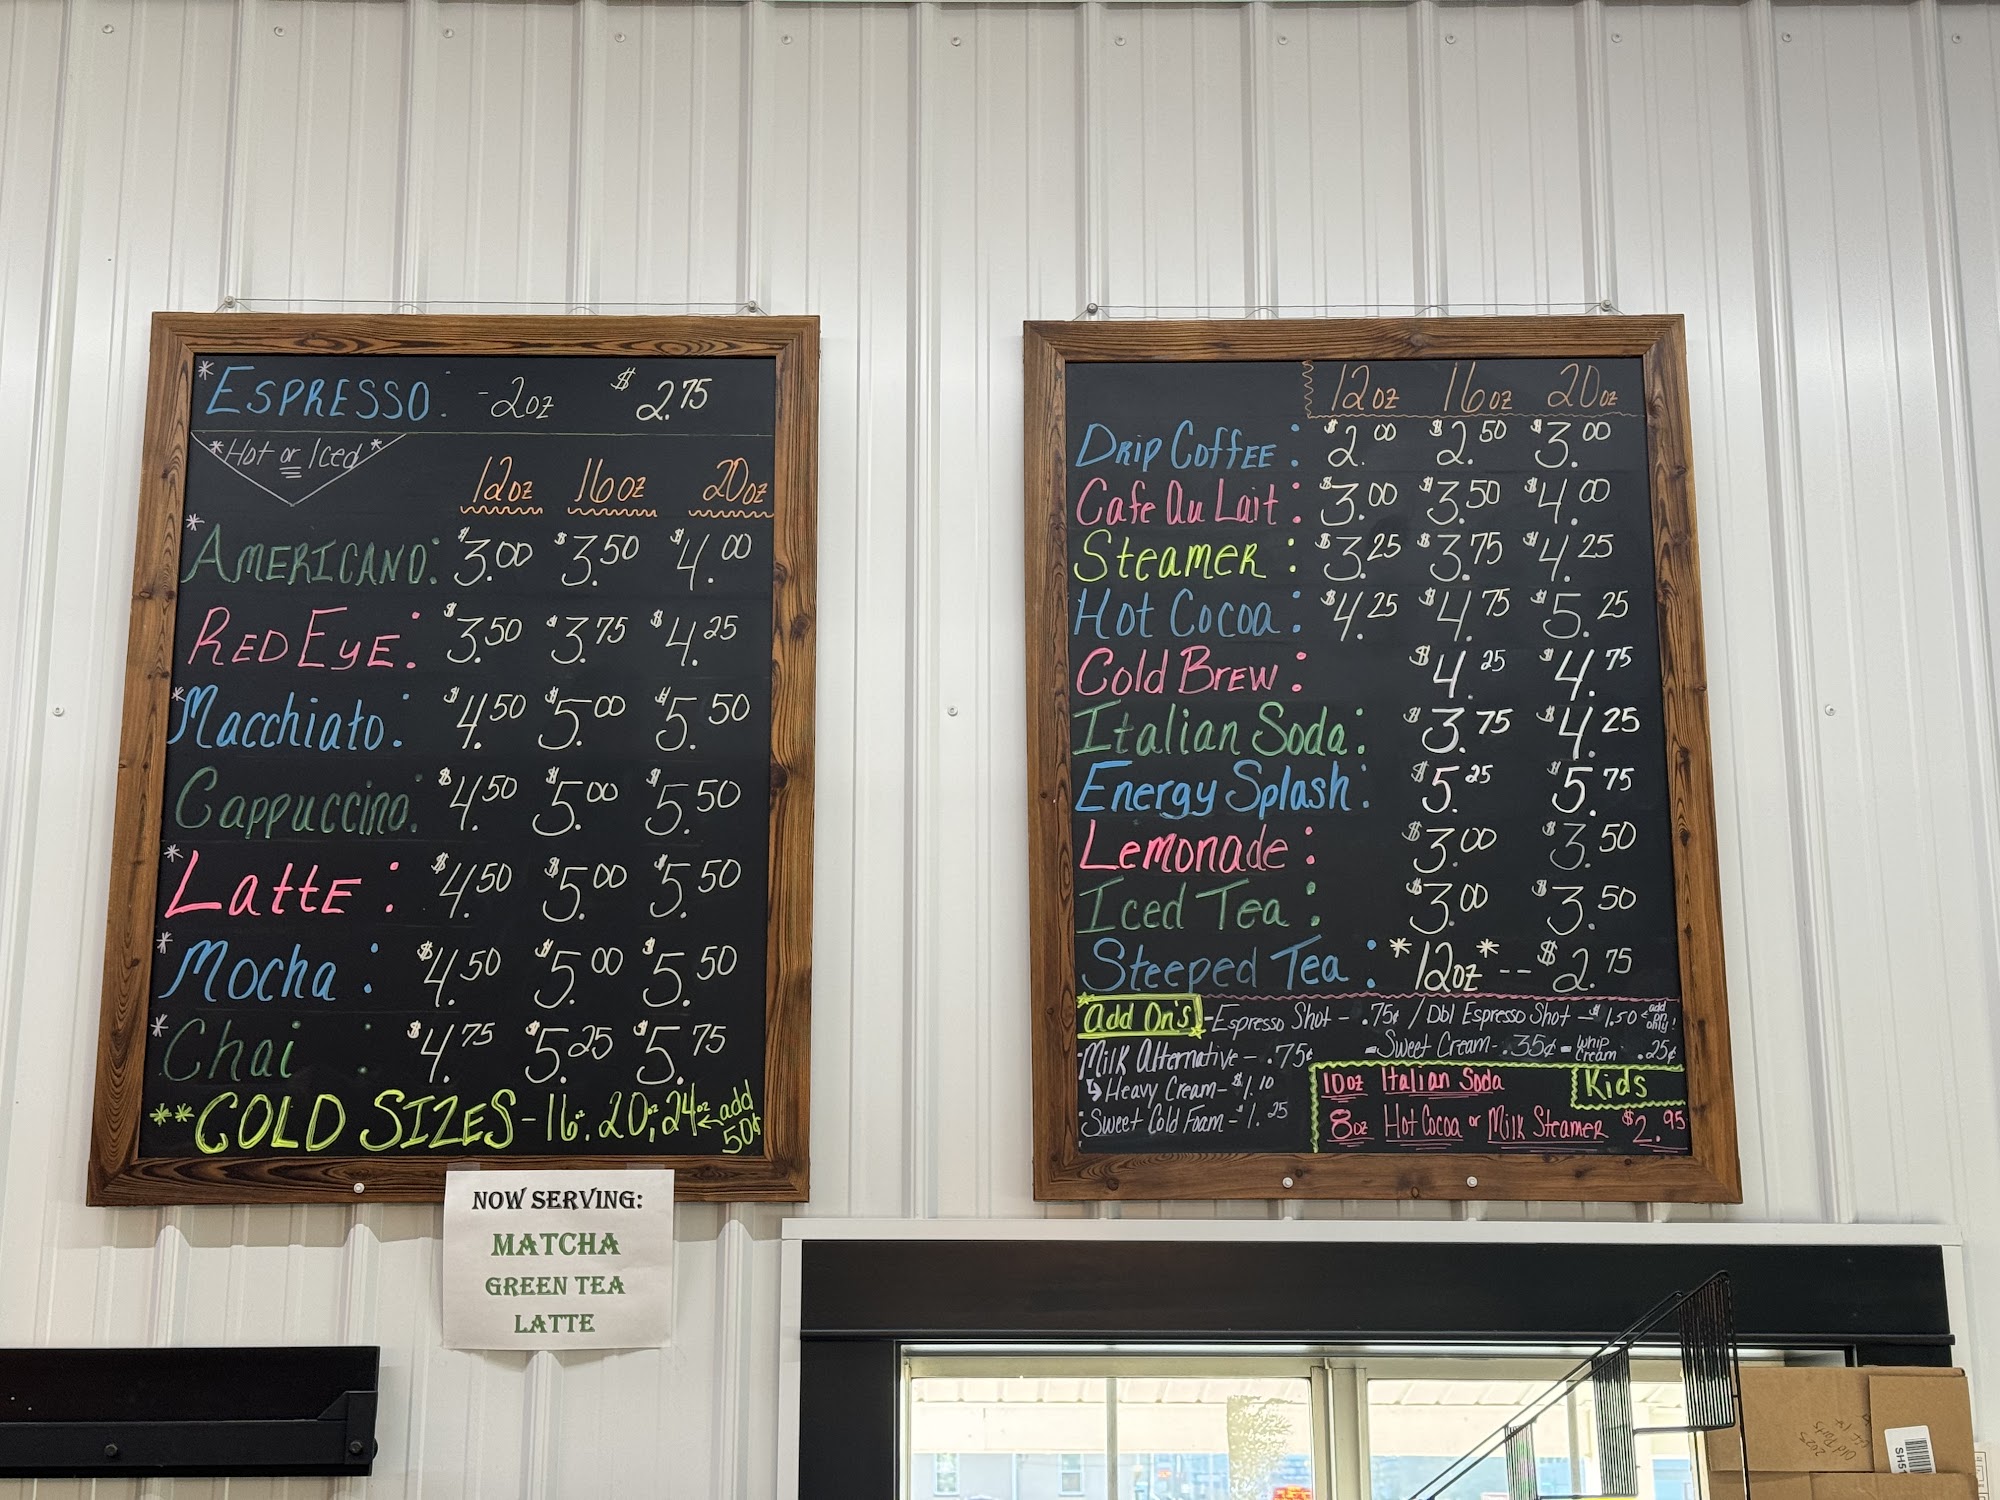 *ESPRESSO: -2oz $2.75
*Hot or Iced*
12oz 16oz 20oz
*AMERICANO: $3.00 $3.50 $4.00
RED EYE: $3.50 $3.75 $4.25
*Macchiato: $4.50 $5.00 $5.50
Cappuccino: $4.50 $5.00 $5.50
*LattE: $4.50 $5.00 $5.50
*Mocha: $4.50 $5.00 $5.50
*Chai: $4.75 $5.25 $5.75
**COLD SIZES-16oz. 20oz, 24oz ← add 50¢
NOW SERVING:
MATCHA
GREEN TEA
LATTE
12oz 16oz 20oz
DRIP COFFEE: $2.00 $2.50 $3.00
Cafe Au Lait: $3.00 $3.50 $4.00
SteameR: $3.25 $3.75 $4.25
Hot Cocoa: $4.25 $4.75 $5.25
Cold BREW: $4.25 $4.75
Italian Soda: $3.75 $4.25
Energy Splash: $5.25 $5.75
Lemonade: $3.00 $3.50
Iced Tea: $3.00 $3.50
Steeped Tea: *12oz*--$2.75
*Add On's -Espresso Shot - .75¢ / Dbl Espresso Shot - $1.50 ← add on only!
-Milk Alternative - .75¢ -Sweet Cream- .35¢ - Whip Cream .25¢
↳ Heavy Cream- $1.10
Sweet Cold Foam - $1.25
Kids
10oz Italian Soda
8oz Hot Cocoa or Milk Steamer $2.95
Old Parts
2025